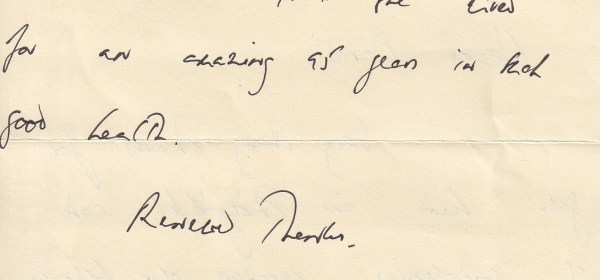 lived
for an amazing 95 years in such
good health.
Renewed Thanks.